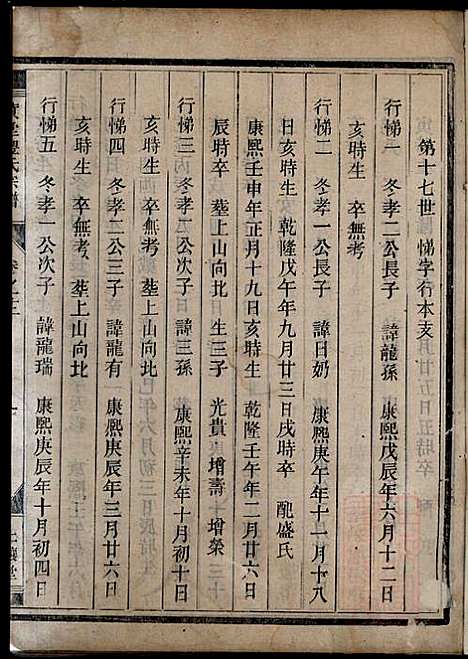 第十七世 悌字行本支
行悌一 冬孝二公長子 諱龍孫 康熙戊辰年六月十二日
亥時生 卒無考
行悌二 冬孝一公長子 諱日奶 康熙庚午年十一月十八
日亥時生 乾隆戊午年九月廿三日戌時卒 配盛氏
康熙壬申年正月十九日亥時生 乾隆壬午年二月廿六日
辰時卒 塟上山向北 生三子 光貴 增壽 增榮
行悌三 冬孝一公次子 諱三孫 康熙辛未年十月初二日
亥時生 卒無考 塟上山向北
行悌四 冬孝二公三子 諱龍有 康熙庚辰年三月廿六日
亥時生 卒無考 塟上山向北
行悌五 冬孝一公次子 諱龍瑞 康熙庚辰年十月初四日